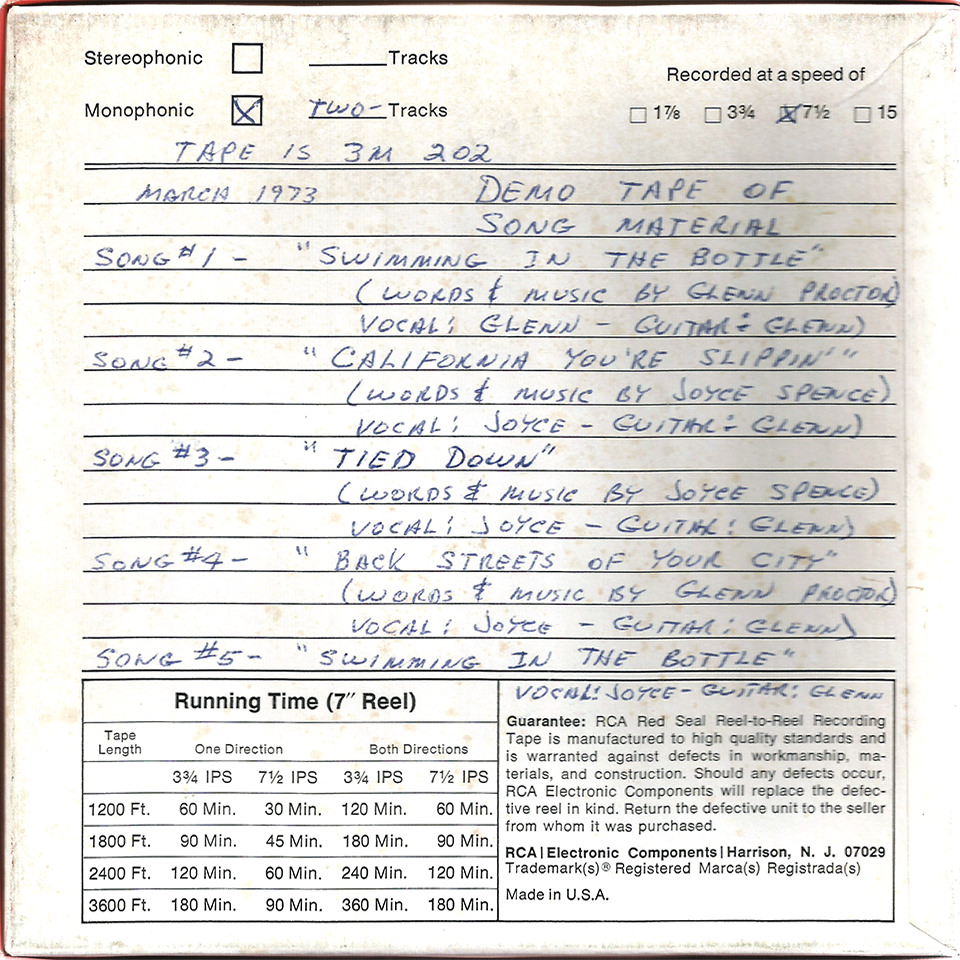 Stereophonic ☐ ______Tracks
Monophonic ☒ TWO-Tracks
Recorded at a speed of
☐ 1⅞ ☐ 3¾ ☒ 7½ ☐ 15
TAPE IS 3M 202
MARCH 1973 DEMO TAPE OF
SONG MATERIAL
SONG #1 - "SWIMMING IN THE BOTTLE"
(WORDS & MUSIC BY GLENN PROCTOR)
VOCAL: GLENN - GUITAR: GLENN)
SONG #2 - "CALIFORNIA YOU'RE SLIPPIN'"
(WORDS & MUSIC BY JOYCE SPENCE)
VOCAL: JOYCE - GUITAR: GLENN)
SONG #3 - "TIED DOWN"
(WORDS & MUSIC BY JOYCE SPENCE)
VOCAL: JOYCE - GUITAR: GLENN)
SONG #4 - "BACK STREETS OF YOUR CITY"
(WORDS & MUSIC BY GLENN PROCTOR)
VOCAL: JOYCE - GUITAR: GLENN)
SONG #5 - "SWIMMING IN THE BOTTLE"
VOCAL: JOYCE - GUITAR: GLENN
Running Time (7″ Reel)
Tape Length One Direction Both Directions
3¾ IPS 7½ IPS 3¾ IPS 7½ IPS
1200 Ft. 60 Min. 30 Min. 120 Min. 60 Min.
1800 Ft. 90 Min. 45 Min. 180 Min. 90 Min.
2400 Ft. 120 Min. 60 Min. 240 Min. 120 Min.
3600 Ft. 180 Min. 90 Min. 360 Min. 180 Min.
Guarantee: RCA Red Seal Reel-to-Reel Recording
Tape is manufactured to high quality standards and
is warranted against defects in workmanship, ma-
terials, and construction. Should any defects occur,
RCA Electronic Components will replace the defec-
tive reel in kind. Return the defective unit to the seller
from whom it was purchased.
RCA | Electronic Components | Harrison, N. J. 07029
Trademark(s)® Registered Marca(s) Registrada(s)
Made in U.S.A.